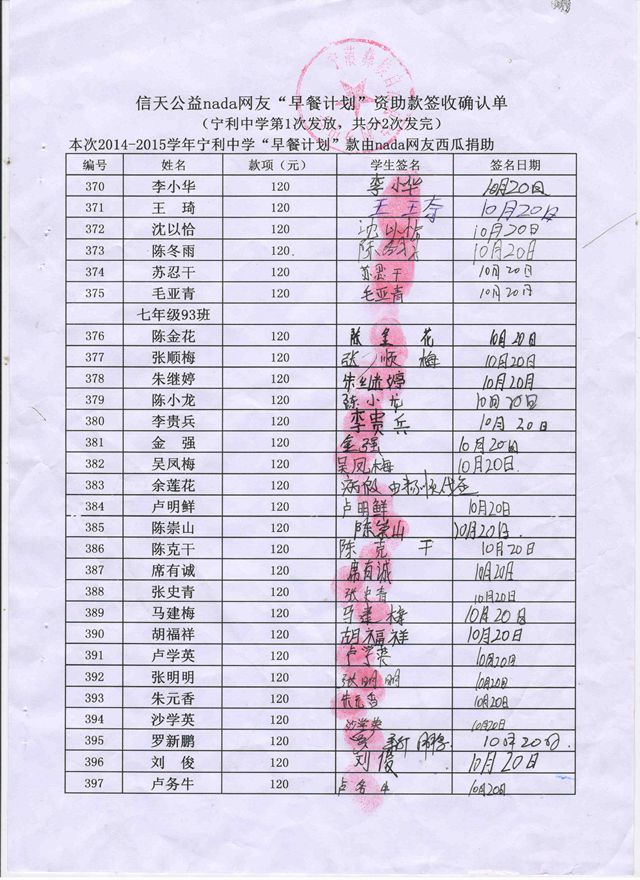 信天公益nada网友“早餐计划”资助款签收确认单
（宁利中学第1次发放，共分2次发完）
本次2014-2015学年宁利中学“早餐计划”款由nada网友西瓜捐助
编号 姓名 款项（元） 学生签名 签名日期
370 李小华 120 李小华 10月20日
371 王　琦 120 王 10月20日
372 沈以恰 120 沈以恰 10月20日
373 陈冬雨 120. 陈 10月20日
374 苏忍干 120 苏忍干 10月20日
375 毛亚青 120 毛亚青 10月20日
七年级93班
376 陈金花 120 陈金花 10月20日
377 张顺梅 120 张顺梅 10月20日
378 朱继婷 120 朱继婷 10月20日
379 陈小龙 120 陈小龙 10月20日
380 李贵兵 120 李贵兵 10月20日
381 金　强 120 金强 10月20日
382 吴凤梅 120 吴凤梅 10月20日.
383 余莲花 120 病假由
384 卢明鲜 120 卢明鲜 10月20日
385 陈崇山 120 陈崇山 10月20日.
386 陈克干 120 陈克干 10月20日
387 席有诚 120 席有诚 10月20日
388 张史青 120 张史青 10月20日
389 马建梅 120 马建梅 10月20日
390 胡福祥 120 胡福祥 10月20日
391 卢学英 120 卢学英 10月20日
392 张明明 120 张明明 10月20日
393 朱元香 120 朱元香 10月20日
394 沙学英 120 沙学英 10月20日
395 罗新鹏 120 罗新鹏 10月20日.
396 刘　俊 120 刘俊 10月20日
397 卢务牛 120 卢务牛 10月20日